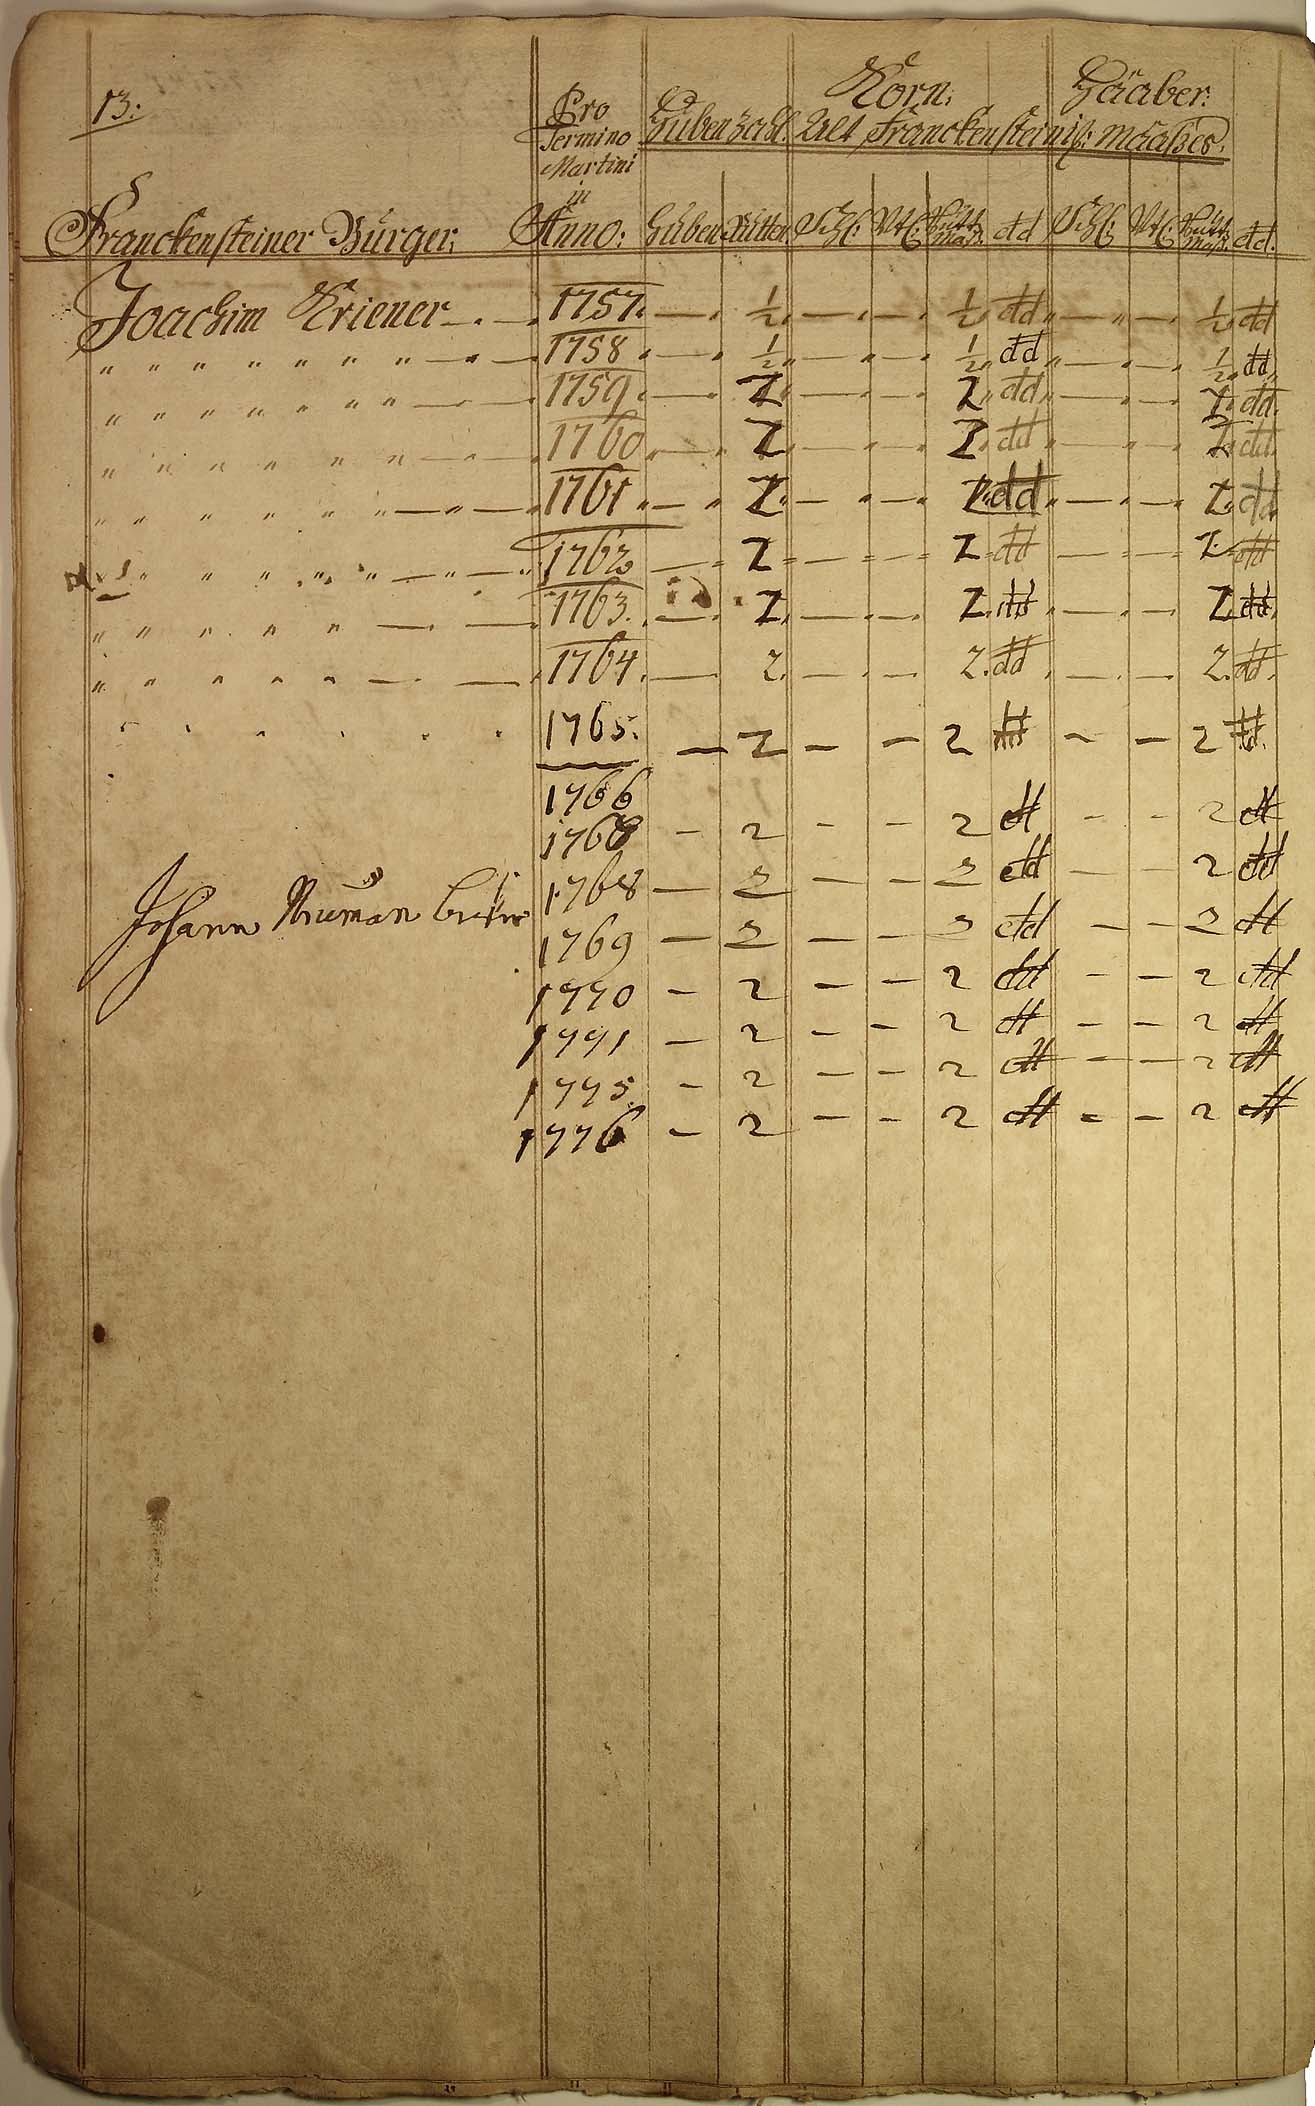 13:
Korn: Haaber:
Pro Termino Martini in Anno:
Huben Zahl. Alt Franckensteinis: Maaßes.
Franckensteiner Bürger: Huben Rutten. Schl: Vtl: Maaß. dd Schl: Vtl: Maaß. dd.
Joachim Kriener — . — 1757. — . ½ . — . — . ½ dd — " — . ½ dd
" " " " " " " — . — 1758 . — . ½ " — " — . ½ dd — " — " ½ dd
" " " " " " " " — — 1759 . — . 2 " — . — . 2 dd — . — . 2 dd.
" " " " " " — . — 1760 . — . 2 . — " — . 2 dd — " — . 2 dd.
" " " " " " — " — 1761 " — " 2 " — " — . 2 dd — . — . 2 dd
" " " " " — " — 1762 — . 2 = — = — = 2 dd — - — . 2 dd
" " " " " — . — 1763. — . 2 . — . — . 2 dd — . — . 2 dd.
" " " " " — . — 1764 . — . 2. — . — . 2. dd . — . — . 2. dd.
1765. — 2 — — 2 dd — — 2 dd.
1766
1768 — 2 — — 2 dd — — 2 dd
Johann Niuman 1768 — 2 — — 2 dd — — 2 dd
1769 — 2 — — 2 dd — — 2 dd
1770 — 2 — — 2 dd — — 2 dd
1771 — 2 — — 2 dd — — 2 dd
1775. — 2 — — 2 dd — — 2 dd
1776 — 2 — — 2 dd — — 2 dd